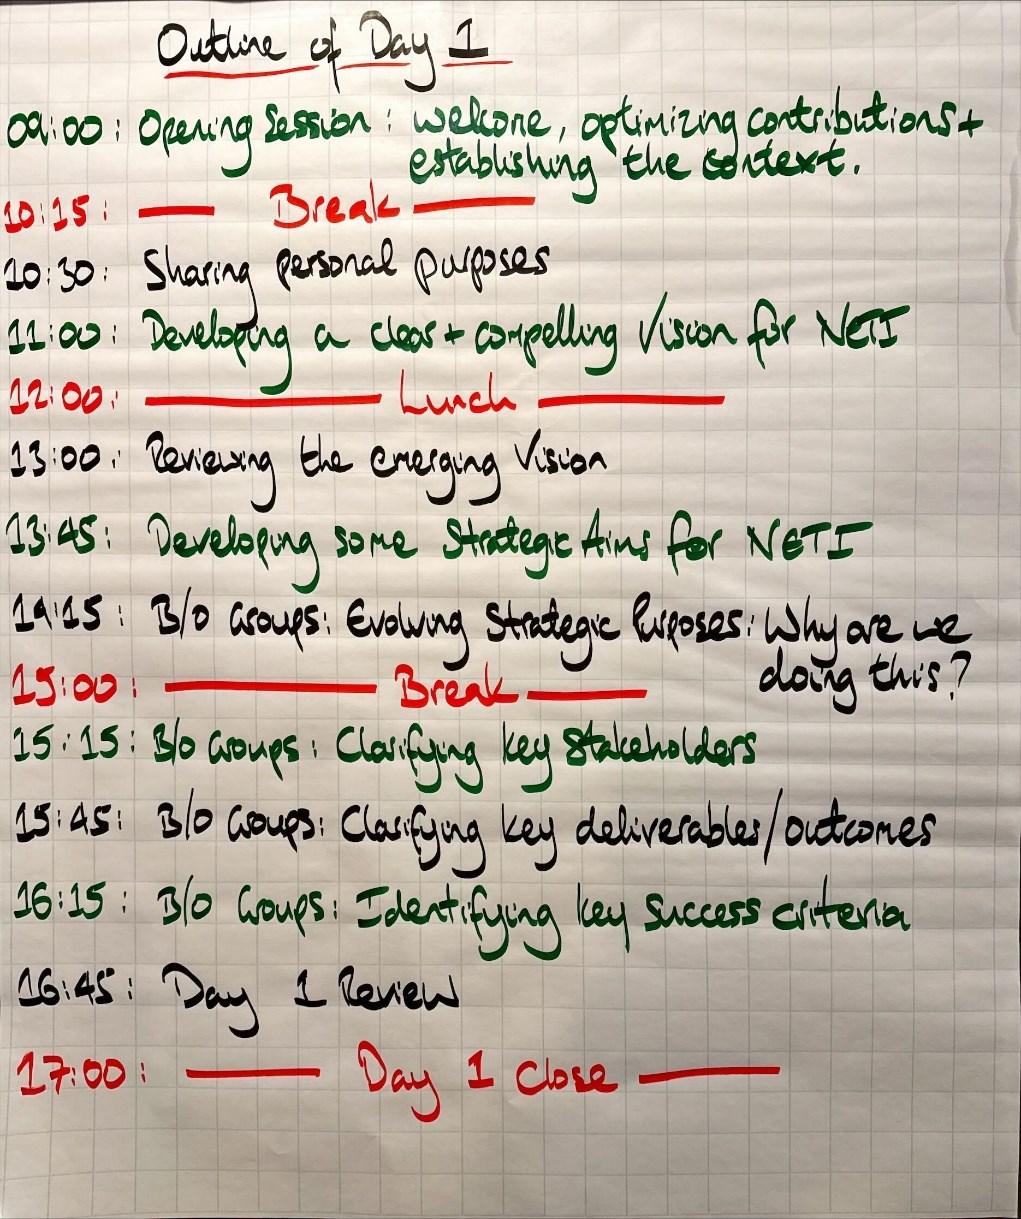 Outline of Day 1
09:00: Opening Session: welcome, optimizing contributions +
establishing the context.
10:15: — Break —
10:30: Sharing personal purposes
11:00: Developing a clear + compelling Vision for NETI
12:00: — Lunch —
13:00: Reviewing the emerging Vision
13:45: Developing some Strategic Aims for NETI
14:15: B/O Groups: Evolving Strategic Purposes: Why are we
doing this?
15:00: — Break —
15:15: B/O Groups: Clarifying key Stakeholders
15:45: B/O Groups: Clarifying key deliverables/outcomes
16:15: B/O Groups: Identifying key success criteria
16:45: Day 1 Review
17:00: — Day 1 Close —